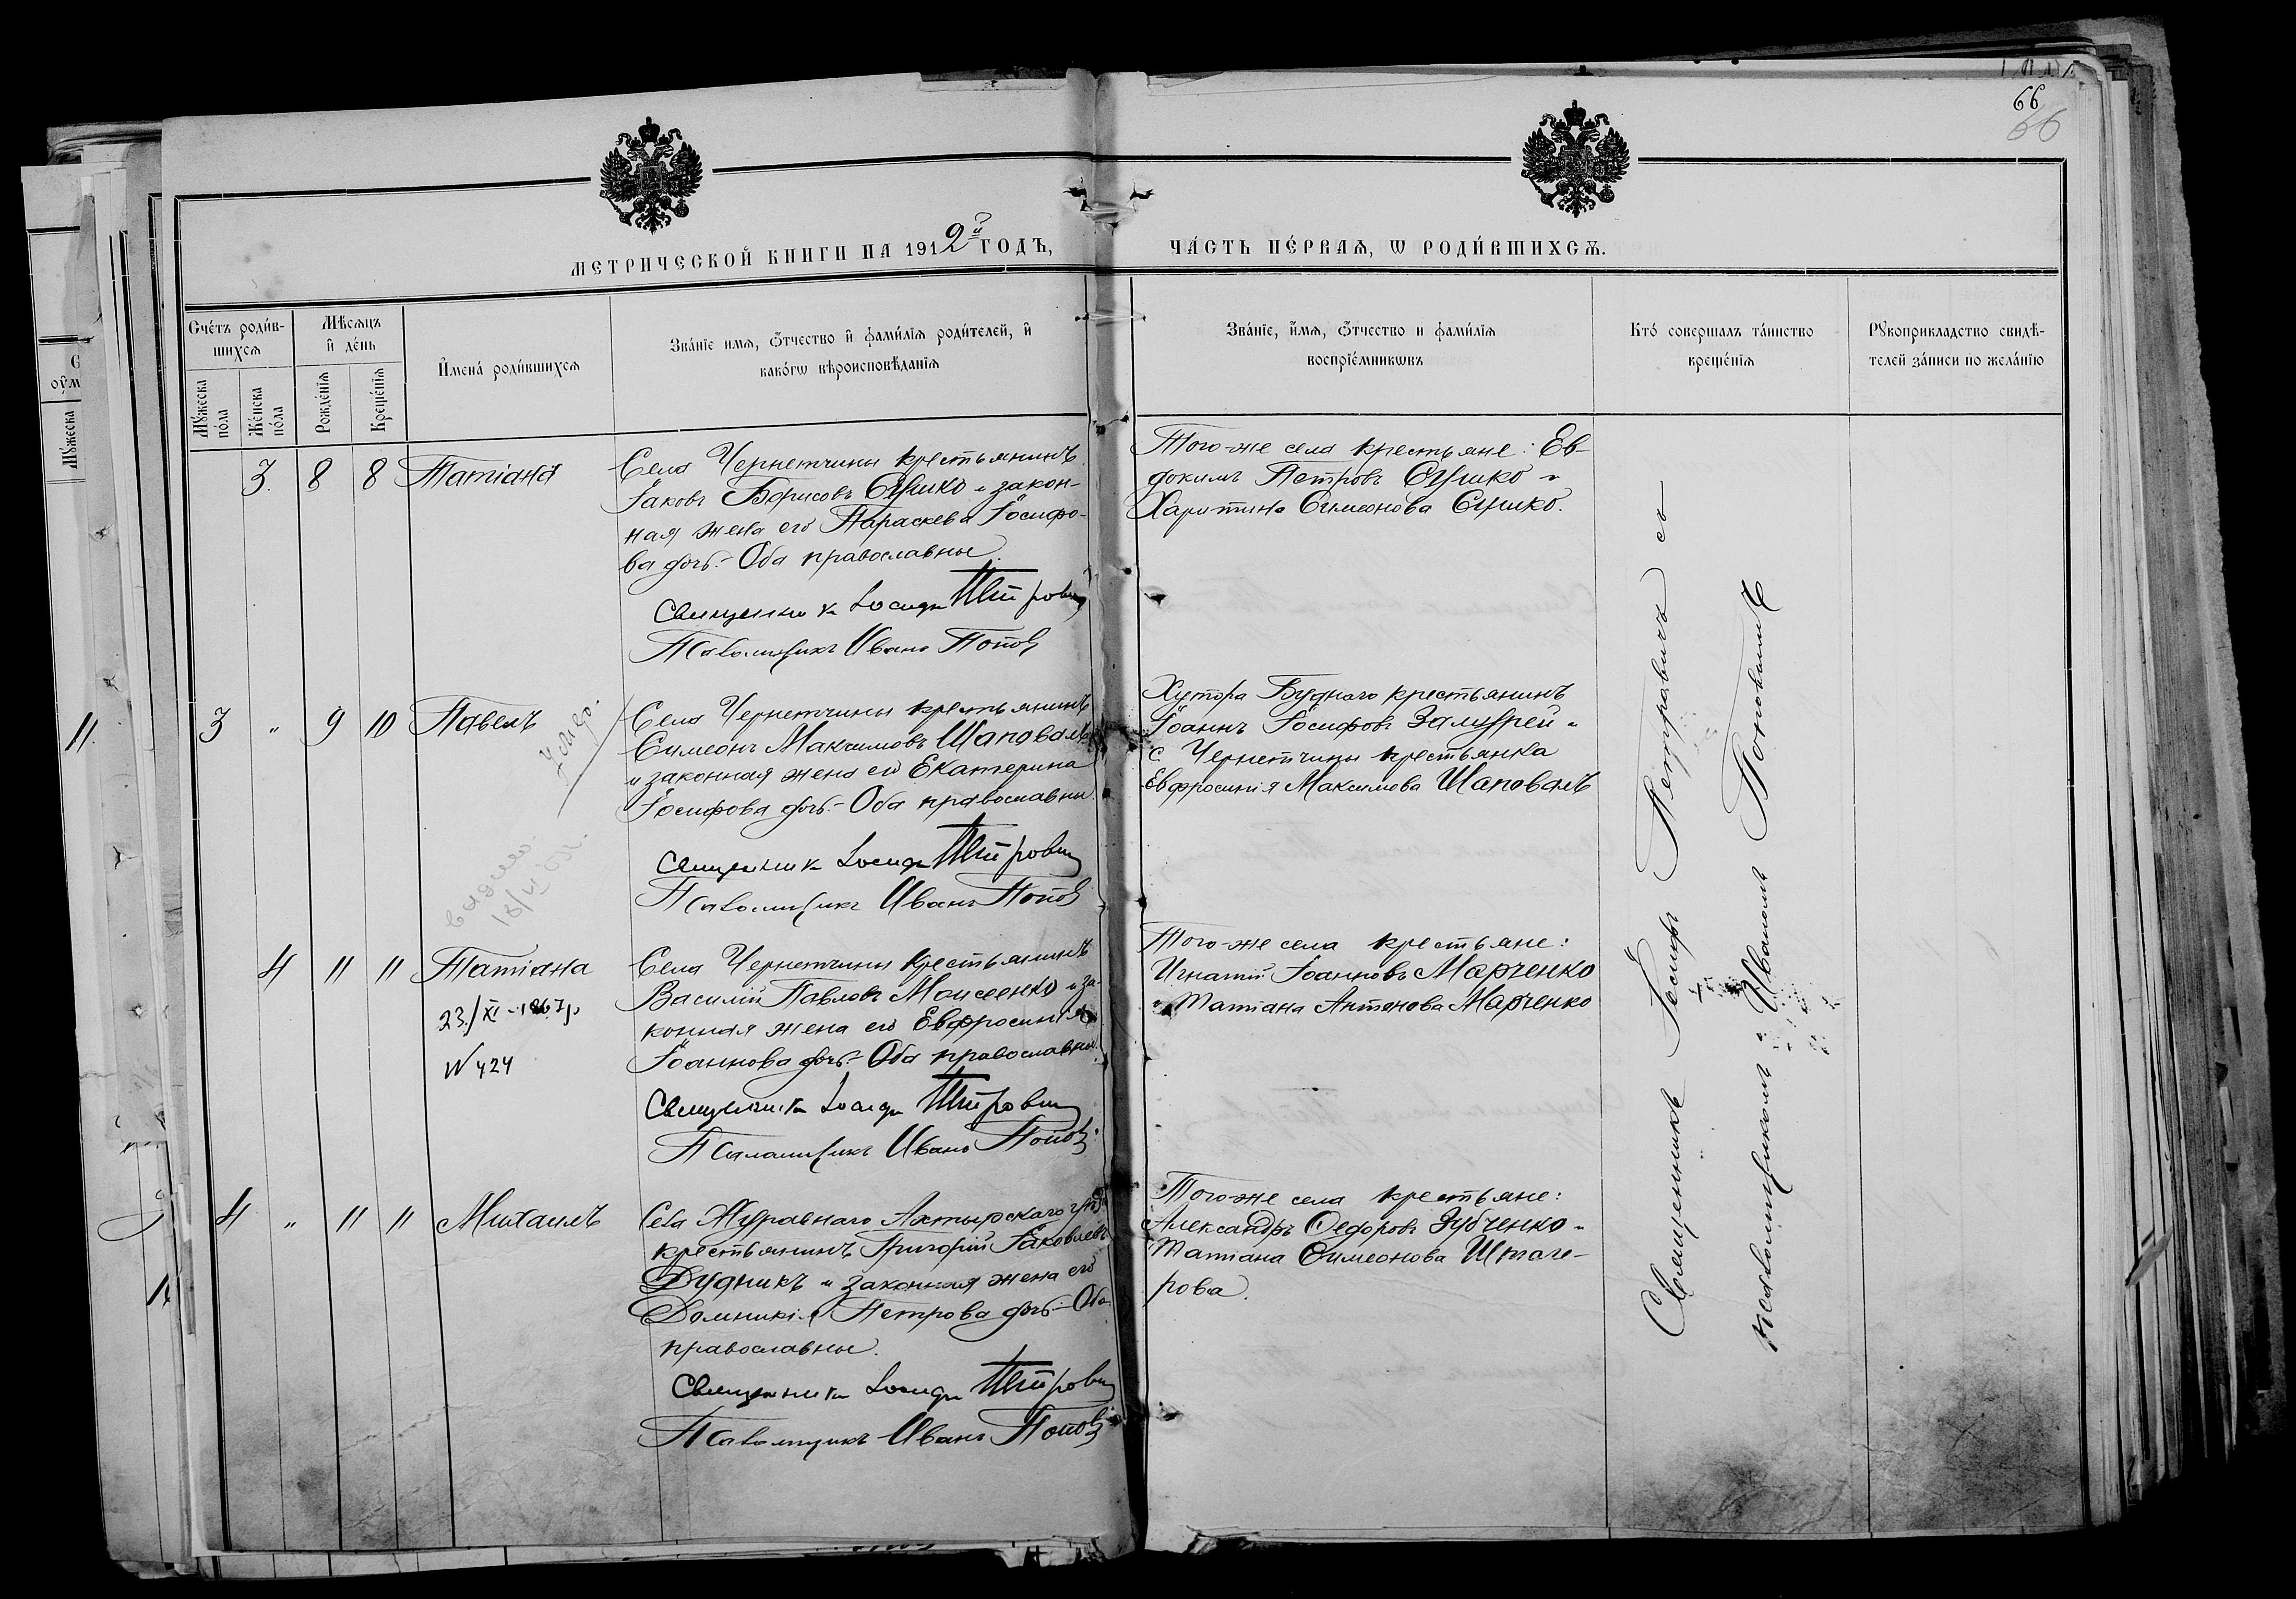 66
66
МЕТРИЧЕСКОЙ КНИГИ НА 1912й ГОДЪ,
ЧА́СТЬ ПЕ́РВАЯ, Ѡ РОДИ́ВШИХСѦ.
Сче́тъ роди́в-
шихсѧ
Мѣсяцъ
и̂ де́нь
Мꙋ́жеска
по́ла
Же́нска
по́ла
Рожде́нїѧ
Креще́нїѧ
И̂мена̀ роди́вшихсѧ
Зва́нїе имѧ, ѻ҆́тчество и҆ фами́лїѧ роди́телей, и҆
како́гѡ вѣроисповѣ́данїѧ
Зва́нїе, и҆́мѧ, ѻ҆́тчество и фами́лїѧ
воспрїе́мникѡвъ
Кто́ совершалъ та́инство
креще́нїѧ
Рꙋкоприкладство свидѣ́-
телей за́писи по жела́нїю
3. 8 8 Татіана
Села Чернетчины крестьянинъ
Іаковъ Борисовъ Сушко и закон-
ная жена его Параскева Іосифо-
ва дочь. – Оба православные.
Священникъ Іосифъ Петровичъ
Псаломщикъ Иванъ Поповъ
Того-же села крестьяне: Ев-
докимъ Петровъ Сушко и
Харитина Симеонова Сушко.
3 " 9 10 Павелъ
Села Чернетчины крестьянинъ
Симеонъ Максимовъ Шаповалъ
и законная жена его Екатерина
Іосифова дочь. – Оба православны.
Священникъ Іосифъ Петровичъ
Псаломщикъ Иванъ Поповъ
Хутора Буднаго крестьянинъ
Іоаннъ Іосифовъ Залудней и
с. Чернетчины крестьянка
Евфросинія Максимова Шаповалъ
4 11 11 Татіана
23/XI-1967р.
N 424
Села Чернетчины крестьянинъ
Василій Павловъ Моисеенко и за-
конная жена его Евфросинія
Іоаннова дочь. – Оба православны.
Священникъ Іосифъ Петровичъ
Псаломщикъ Иванъ Поповъ
Того-же села крестьяне:
Игнатій Іоанновъ Марченко
и Татіана Антонова Марченко
4 " 11 11 Михаилъ
Села Журавнаго Ахтырскаго уѣзда
крестьянинъ Григорій Іаковлевъ
Дудникъ и законная жена его
Домникія Петрова дочь – Оба
православные.
Священникъ Іосифъ Петровичъ
Псаломщикъ Иванъ Поповъ
Того-же села крестьяне:
Александръ Ѳедоровъ Зубченко и
Татіана Симеонова Штаге-
рова.
Священникъ Іосифъ Петровичъ со
псаломщикомъ Иваномъ Поповымъ
11.